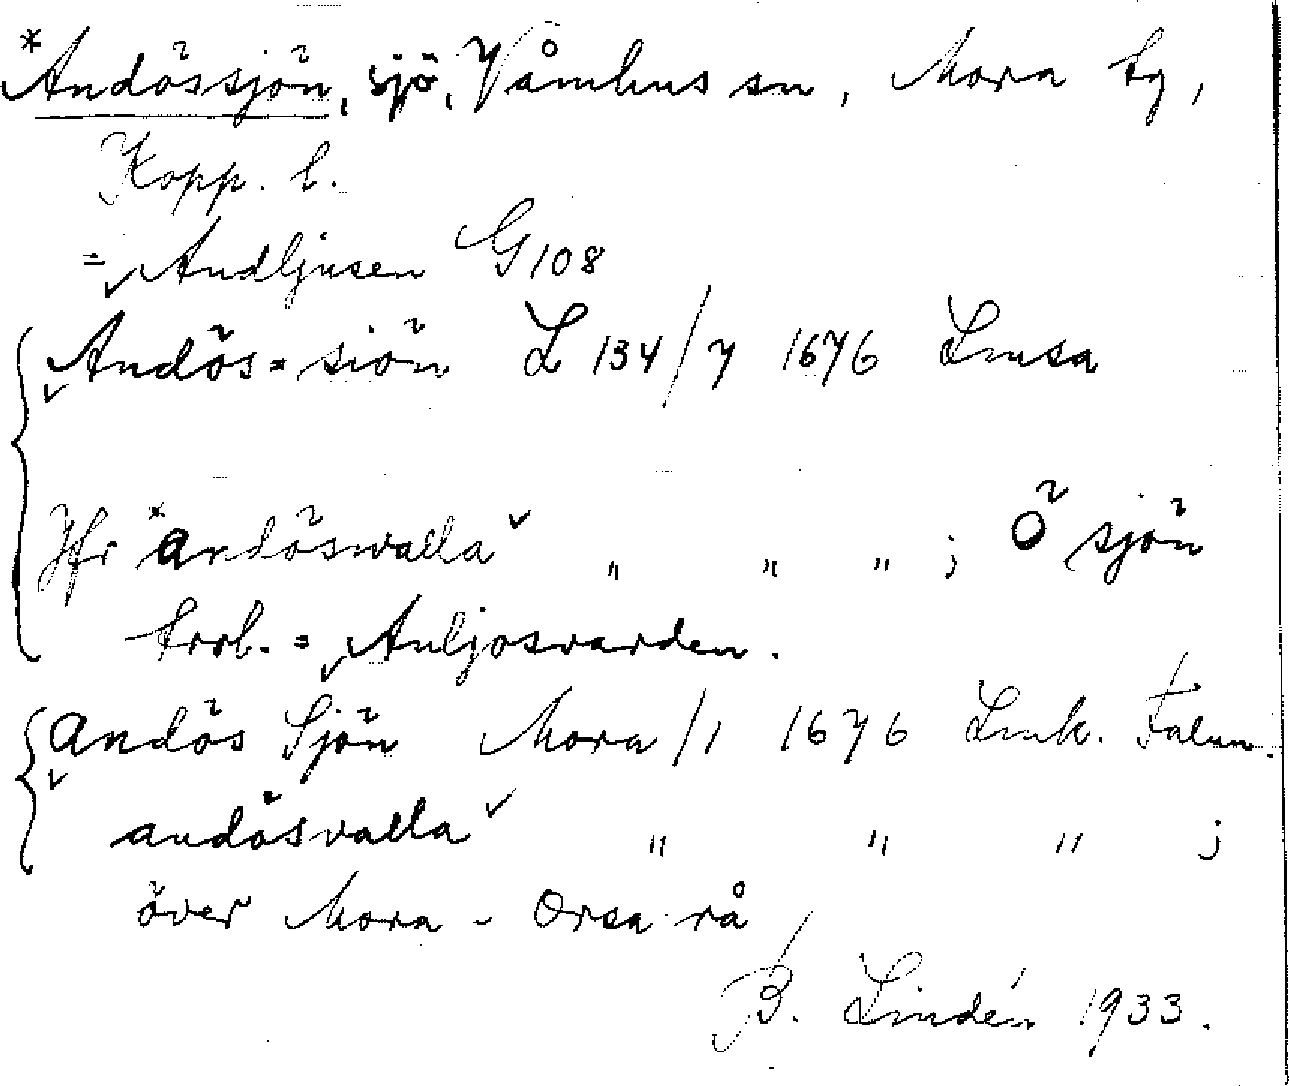 *Andössjön, sjö, Våmhus sn, Mora tg,
Kopp. l.
= Andljusen G 108
Andös=siön L 134/7 1676 Lmsa
Jfr *andöswalla " " " ; Ö sjön
trol. = Anljosvarden.
andös Sjön Mora /1 1676 Lmk. Falun.
andösvalla " " " ;
över Mora - Orsa rå
B. Lindén 1933.